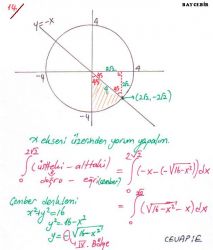 BAY CEBİR
14.)
y=-x
4
-4
4
-4
2√2
45
45
4
(2√2, -2√2)
x ekseni üzerinden yorum yapalım.
∫₀^{2√2} (üstteki - alttaki) = ∫₀^{2√2} (-x - (-√(16-x²))) dx
doğru - eğri (çember)
Çember denklemi
x²+y²=16
y²=16-x²
y=(-)√(16-x²)
IV. Bölge
= ∫₀^{2√2} (√(16-x²) - x) dx
CEVAP: E